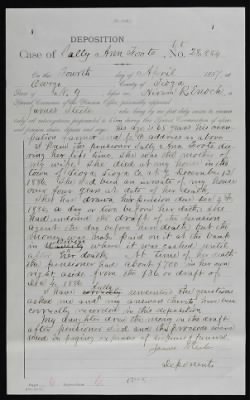 DEPOSITION
Case of Sally Ann Foote, No. 28,494
On this Fourth day of April, 1887, at
Owego, county of Tioga
State of N.Y., before me, Hiram R. Enoch, a
Special Examiner of the Pension Office, personally appeared
James Steele, who, being by me first duly sworn to answer
truly all interrogatories propounded to him during this Special Examination of afore-
said pension claim, deposes and says: his age is 68 years his occu-
pation farmer and P.O. address as above
I knew the pensioner Sally Ann Foote dur-
ing her life time. She was the mother of
my wife. She died at my house in the
town of Tioga Tioga Co N.Y. December 13
1886. She had been an inmate of my house
over four years at date of her death.
She had drawn her pension due Dec 4th
1886, a day or two before her death.
had indorsed the draft of the pension
agent the day before her death, but the
money was not paid on it at the bank
in where it was cashed until
after her death. At time of her death
the pensioner had about $700 in her own
right aside from the $36 or draft of
Dec 4/1886.
I have fully understood the questions
asked me and my answers thereto have been
correctly recorded in this deposition.
My daughter drew the money on the draft
after pensioner died and the proceeds were
used in paying expenses of funeral.
James Steele
Deponent.